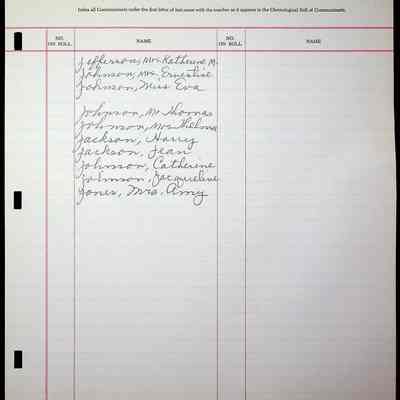 Index all Communicants under the first letter of last name with the number as it appears in the Chronological Roll of Communicants.
NO. ON ROLL NAME NO. ON ROLL NAME
Jefferson, Mrs. Katherine M.
Johnson, Mrs. Ernestine
Johnson, Miss Eva
Johnson, Mr. Thomas
Johnson, Mrs. Thelma
Jackson, Harry
Jackson, Jean
Johnson, Catherine
Johnson, Jacqueline
Jones, Mrs. Amy